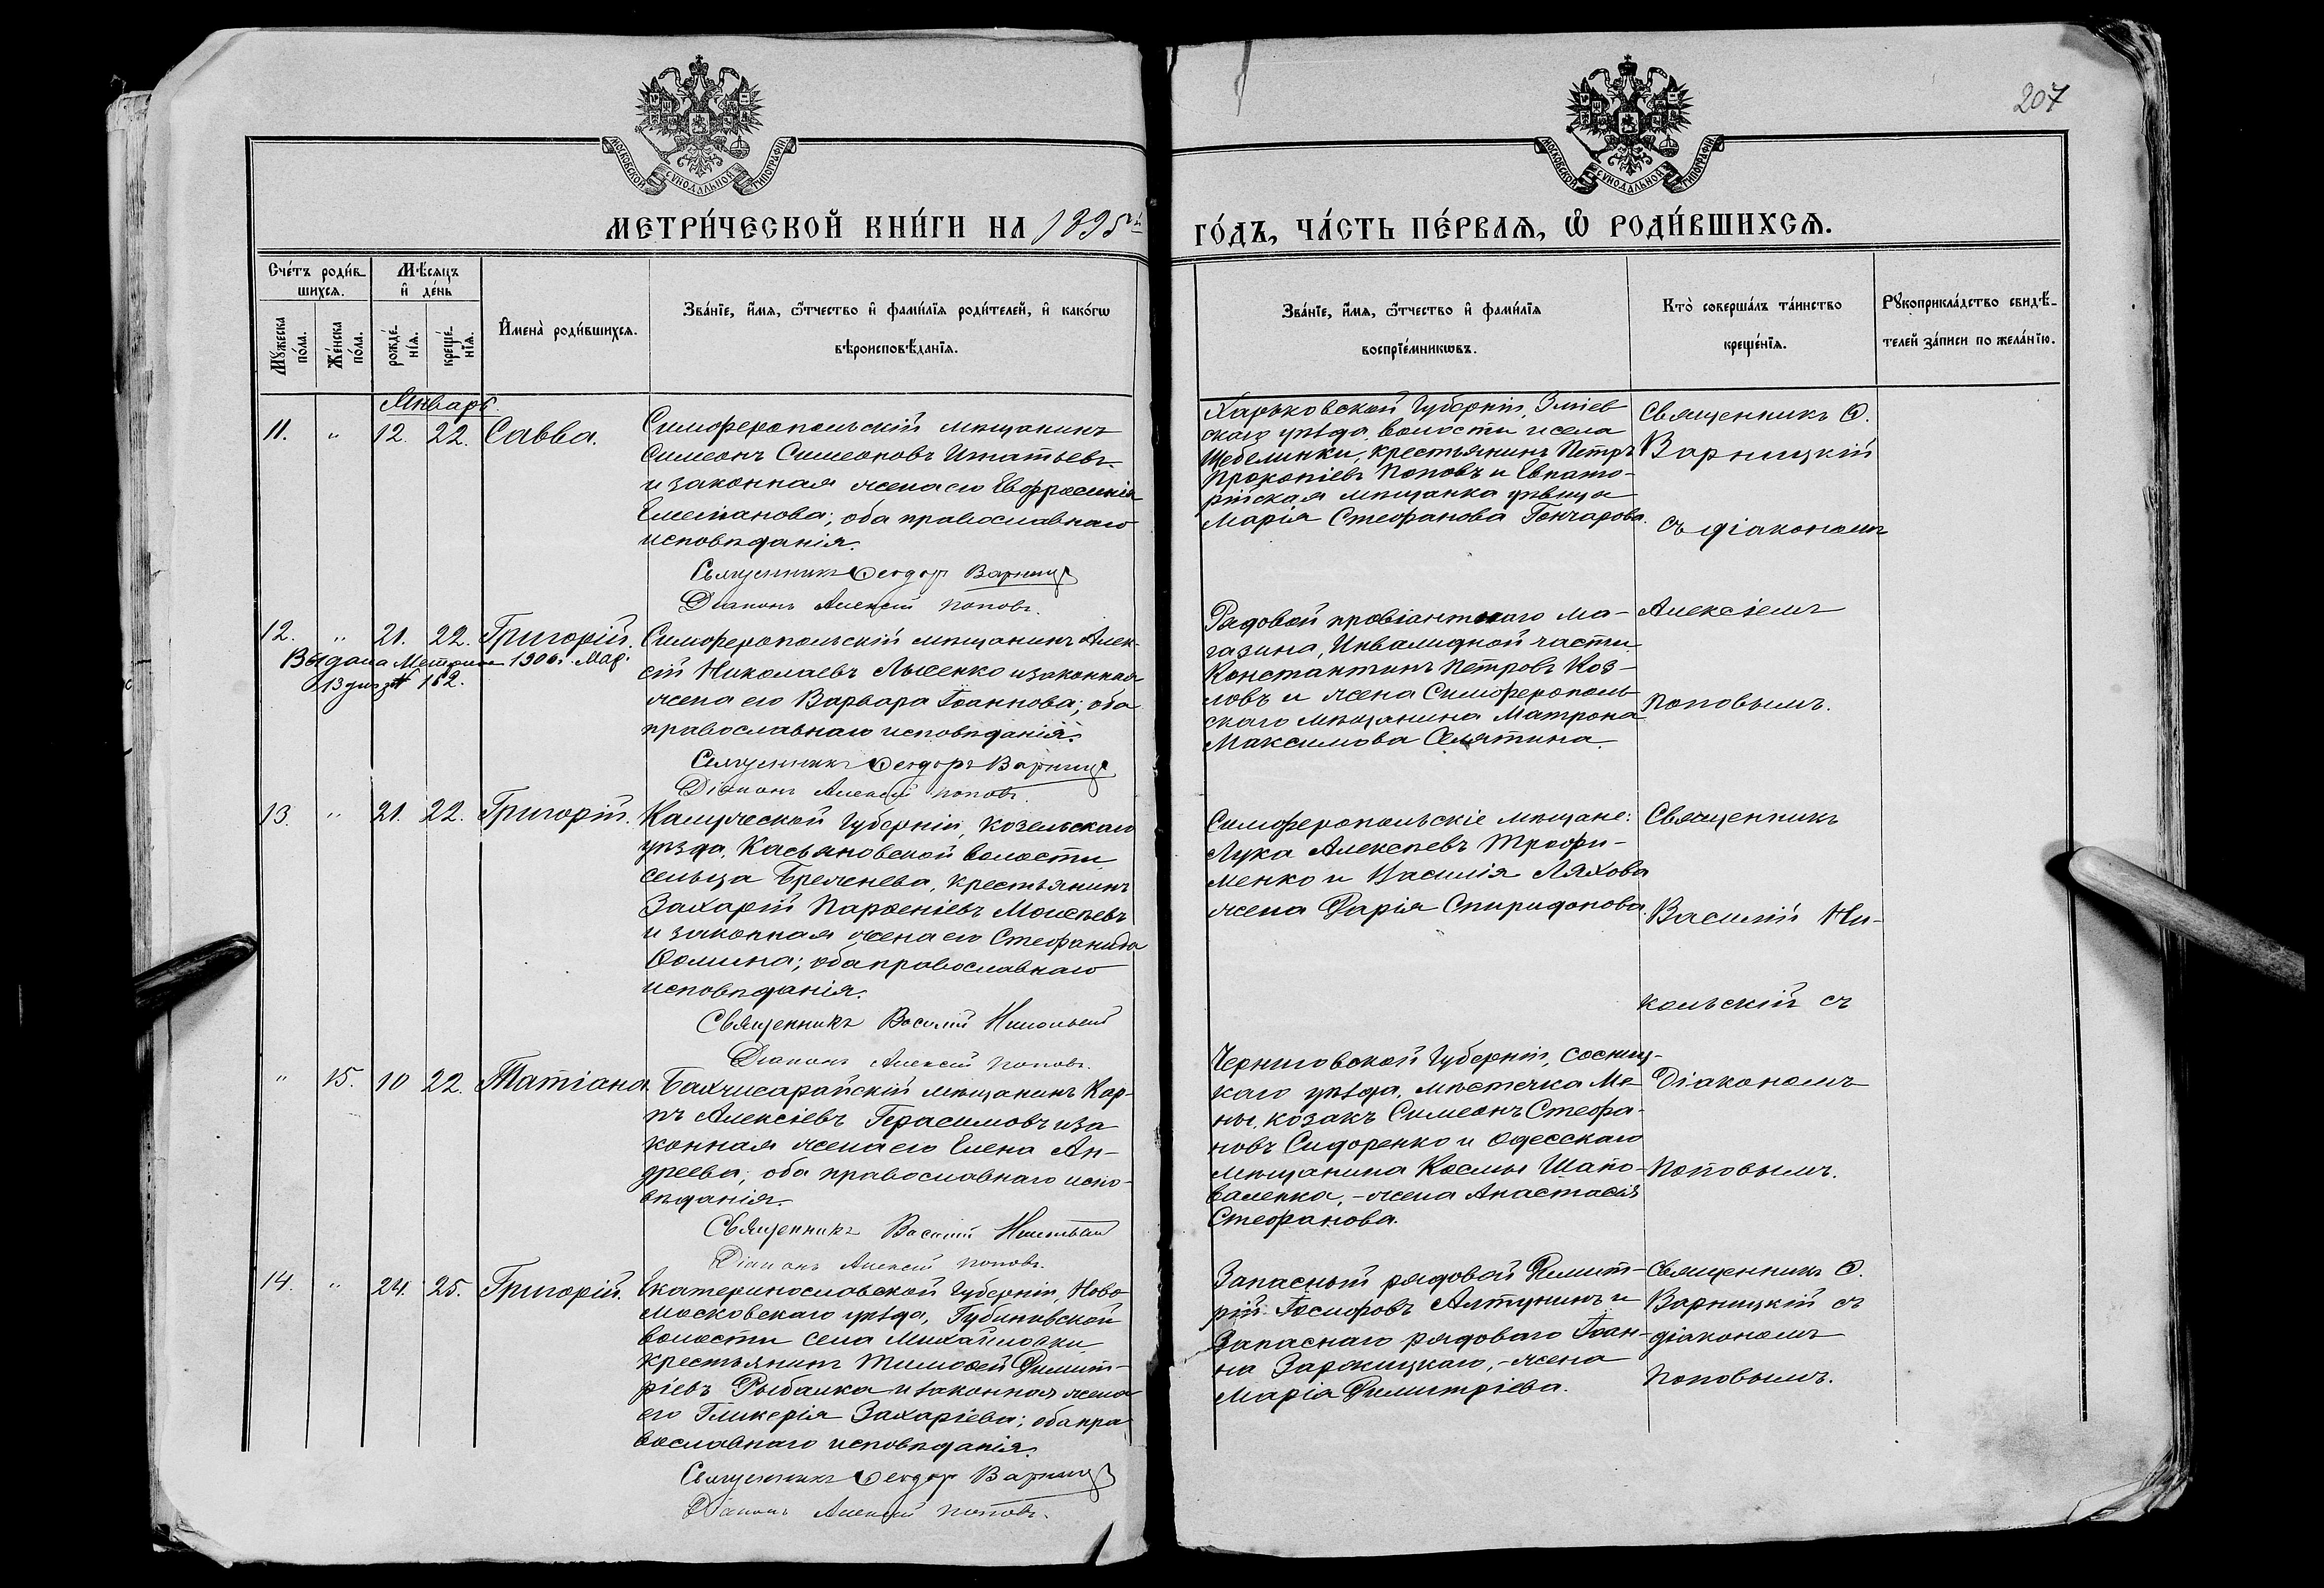 207
МОСКОВСКОЙ СѴНОДАЛЬНОЙ ТИПОГРАФІИ
МОСКОВСКОЙ СѴНОДАЛЬНОЙ ТИПОГРАФІИ
МЕТРИ́ЧЕСКОЙ КНИ́ГИ НА 1895й
ГО́ДЪ, ЧА́СТЬ ПЕ́РВАѦ, Ѡ҆ РОДИ́ВШИХСѦ.
Сче́тъ роди́в
шихсѧ.
Мѣ́сѧцъ
и҆ де́нь
Мꙋ́жеска
по́ла.
Же́нска
по́ла.
рожде́
нїѧ.
креще́
нїѧ.
И҆мена̀ роди́вшихсѧ.
Зва́нїе, и҆́мѧ, ѻ҆́тчество и҆ фами́лїѧ роди́телей, и҆ како́гѡ
вѣроисповѣ́данїѧ.
Зва́нїе, и҆́мѧ, ѻ҆́тчество и҆ фами́лїѧ
воспрїе́мникѡвъ.
Кто̀ соверша́лъ та́инство
креще́нїѧ.
Рꙋкоприкла́дство свидѣ́-
телей за́писи по жела́нїю.
Январь
11. " 12. 22. Савва.
Симферопольскій мѣщанинъ
Симеонъ Симеоновъ Игнатьевъ
и законная жена его Евфросинія
Емеліанова; оба православнаго
исповѣданія.
Священникъ Ѳеодоръ Варниц
Діаконъ Алексій Поповъ.
Харьковской Губерніи, Зміев
скаго уѣзда, волости и села
Щебелинки, крестьянинъ Петръ
Прокопіевъ Поповъ и Евпато-
рійская мѣщанка дѣвица
Марія Стефанова Гончарова.
Священникъ Ѳ.
Варницкій
съ діакономъ
12. " 21. 22. Григорій.
Выдана Метрика 1906г. Мар.
13 дня № 162.
Симферопольскій мѣщанинъ Алек-
сій Николаевъ Лысенко и законная
жена его Варвара Іоаннова; оба
православнаго исповѣданія.
Священникъ Ѳеодоръ Варниц
Діаконъ Алексій Поповъ.
Рядовой провіантскаго ма-
газина, Инвалидной части
Константинъ Петровъ Коз-
ловъ и жена Симферополь-
скаго мѣщанина Матрона
Максимова Селятина.
Алексіемъ
Поповымъ.
13. " 21. 22. Григорій.
Калужской Губерніи, Козельскаго
уѣзда, Касьяновской волости
сельца Бреженева, крестьянинъ
Захарій Парѳеніевъ Моисѣевъ
и законная жена его Стефанида
Ѳомина; оба православнаго
исповѣданія.
Священникъ Василій Никольскій
Діаконъ Алексій Поповъ.
Симферопольскіе мѣщане:
Лука Алексѣевъ Трофи-
менко и Василія Ляхова
жена Дарія Спиридонова
Священникъ
Василій Ни-
кольскій съ
" 15. 10 22. Татіана
Бахчисарайскій мѣщанинъ Кар-
пъ Алексіевъ Герасимовъ и за
конная жена его Елена Ан-
дреева; оба православнаго испо-
вѣданія.
Священникъ Василій Никольскій
Діаконъ Алексій Поповъ.
Черниговской Губерніи, Сосниц-
каго уѣзда, мѣстечка Ме-
ны, козакъ Симеонъ Стефа-
новъ Сидоренко и Одесскаго
мѣщанина Космы Шапо-
валенка, - жена Анастасія
Стефанова.
Діакономъ
Поповымъ.
14. " 24. 25. Григорій.
Екатеринославской Губерніи, Ново
московскаго уѣзда, Губиновской
волости села Михайловки
крестьянинъ Тимоѳей Димит-
ріевъ Рыбалка и законная жена
его Гликерія Захаріева; оба пра
вославнаго исповѣданія.
Священникъ Ѳеодоръ Варниц
Діаконъ Алексій Поповъ.
Запасный рядовой Димит-
рій Іосифовъ Алтунинъ и
Запаснаго рядоваго Іоан-
на Заржицкаго, - жена
Марія Димитріева.
Священникъ Ѳ.
Варницкій съ
діакономъ
Поповымъ.